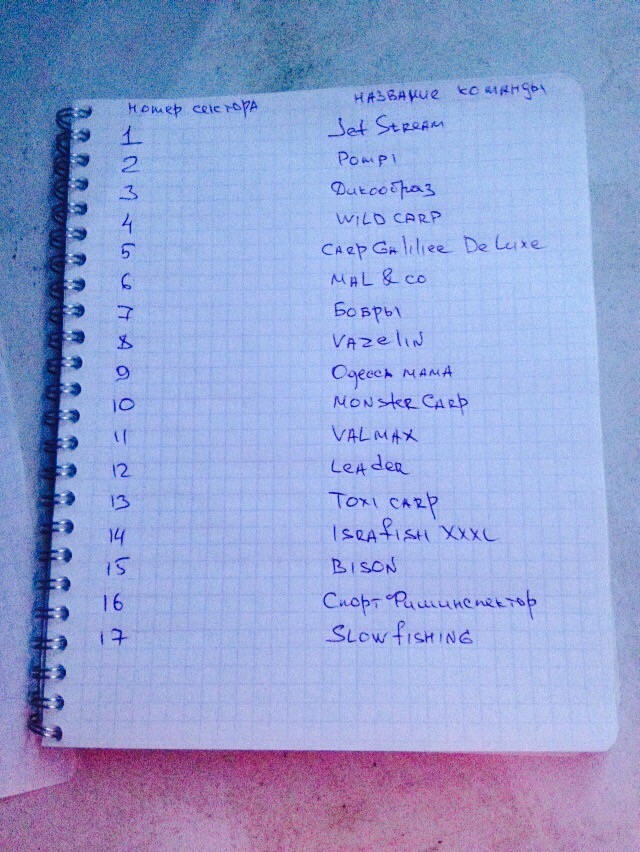 номер сектора название команды
1 Jet Stream
2 Pompi
3 Дикообраз
4 WILD CARP
5 CARP Galiliee De Luxe
6 MAL & CO
7 Бобры
8 VAZeliN
9 Одесса мама
10 MONSterCARP
11 VALMAX
12 LeAder
13 Toxi CARP
14 ISRAfISH XXXL
15 BISON
16 Спорт Фишинспектор
17 SLOWfISHING